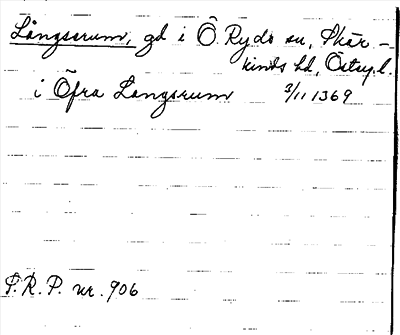 Långserum, gd i Ö. Ryds sn, Skär-
kinds hd, Östergl.
i Öfra Langxrum 3/11 1369
S.R.P. nr. 906